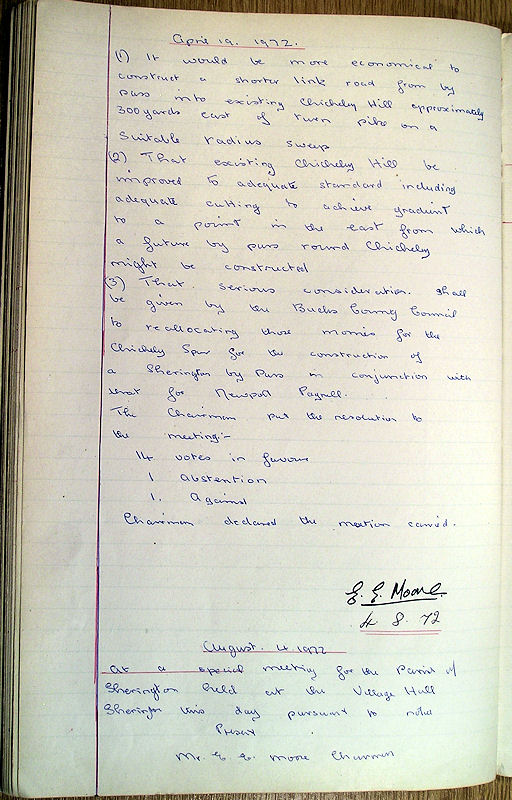 April 19. 1972.
(1) It would be more economical to
construct a shorter link road from by
pass into existing Chicheley Hill approximately
300 yards east of turn pike on a
suitable radius sweep
(2) That existing Chicheley Hill be
improved to adequate standard including
adequate cutting to achieve gradient
to a point in the east from which
a future by pass round Chicheley
might be constructed
(3) That serious consideration shall
be given by the Bucks County Council
to reallocating those monies for the
Chicheley Spur for the construction of
a Sherington by Pass in conjunction with
that for Newport Pagnell.
The Chairman put the resolution to
the meeting:-
14 votes in favour
1 abstention
1. Against
Chairman declared the motion carried.
E. E. Moore.
4 8. 72
August. 4 1972
At a special meeting for the Parish of
Sherington held at the Village Hall
Sherington this day pursuant to notice
Present
Mr. E E. Moore Chairman